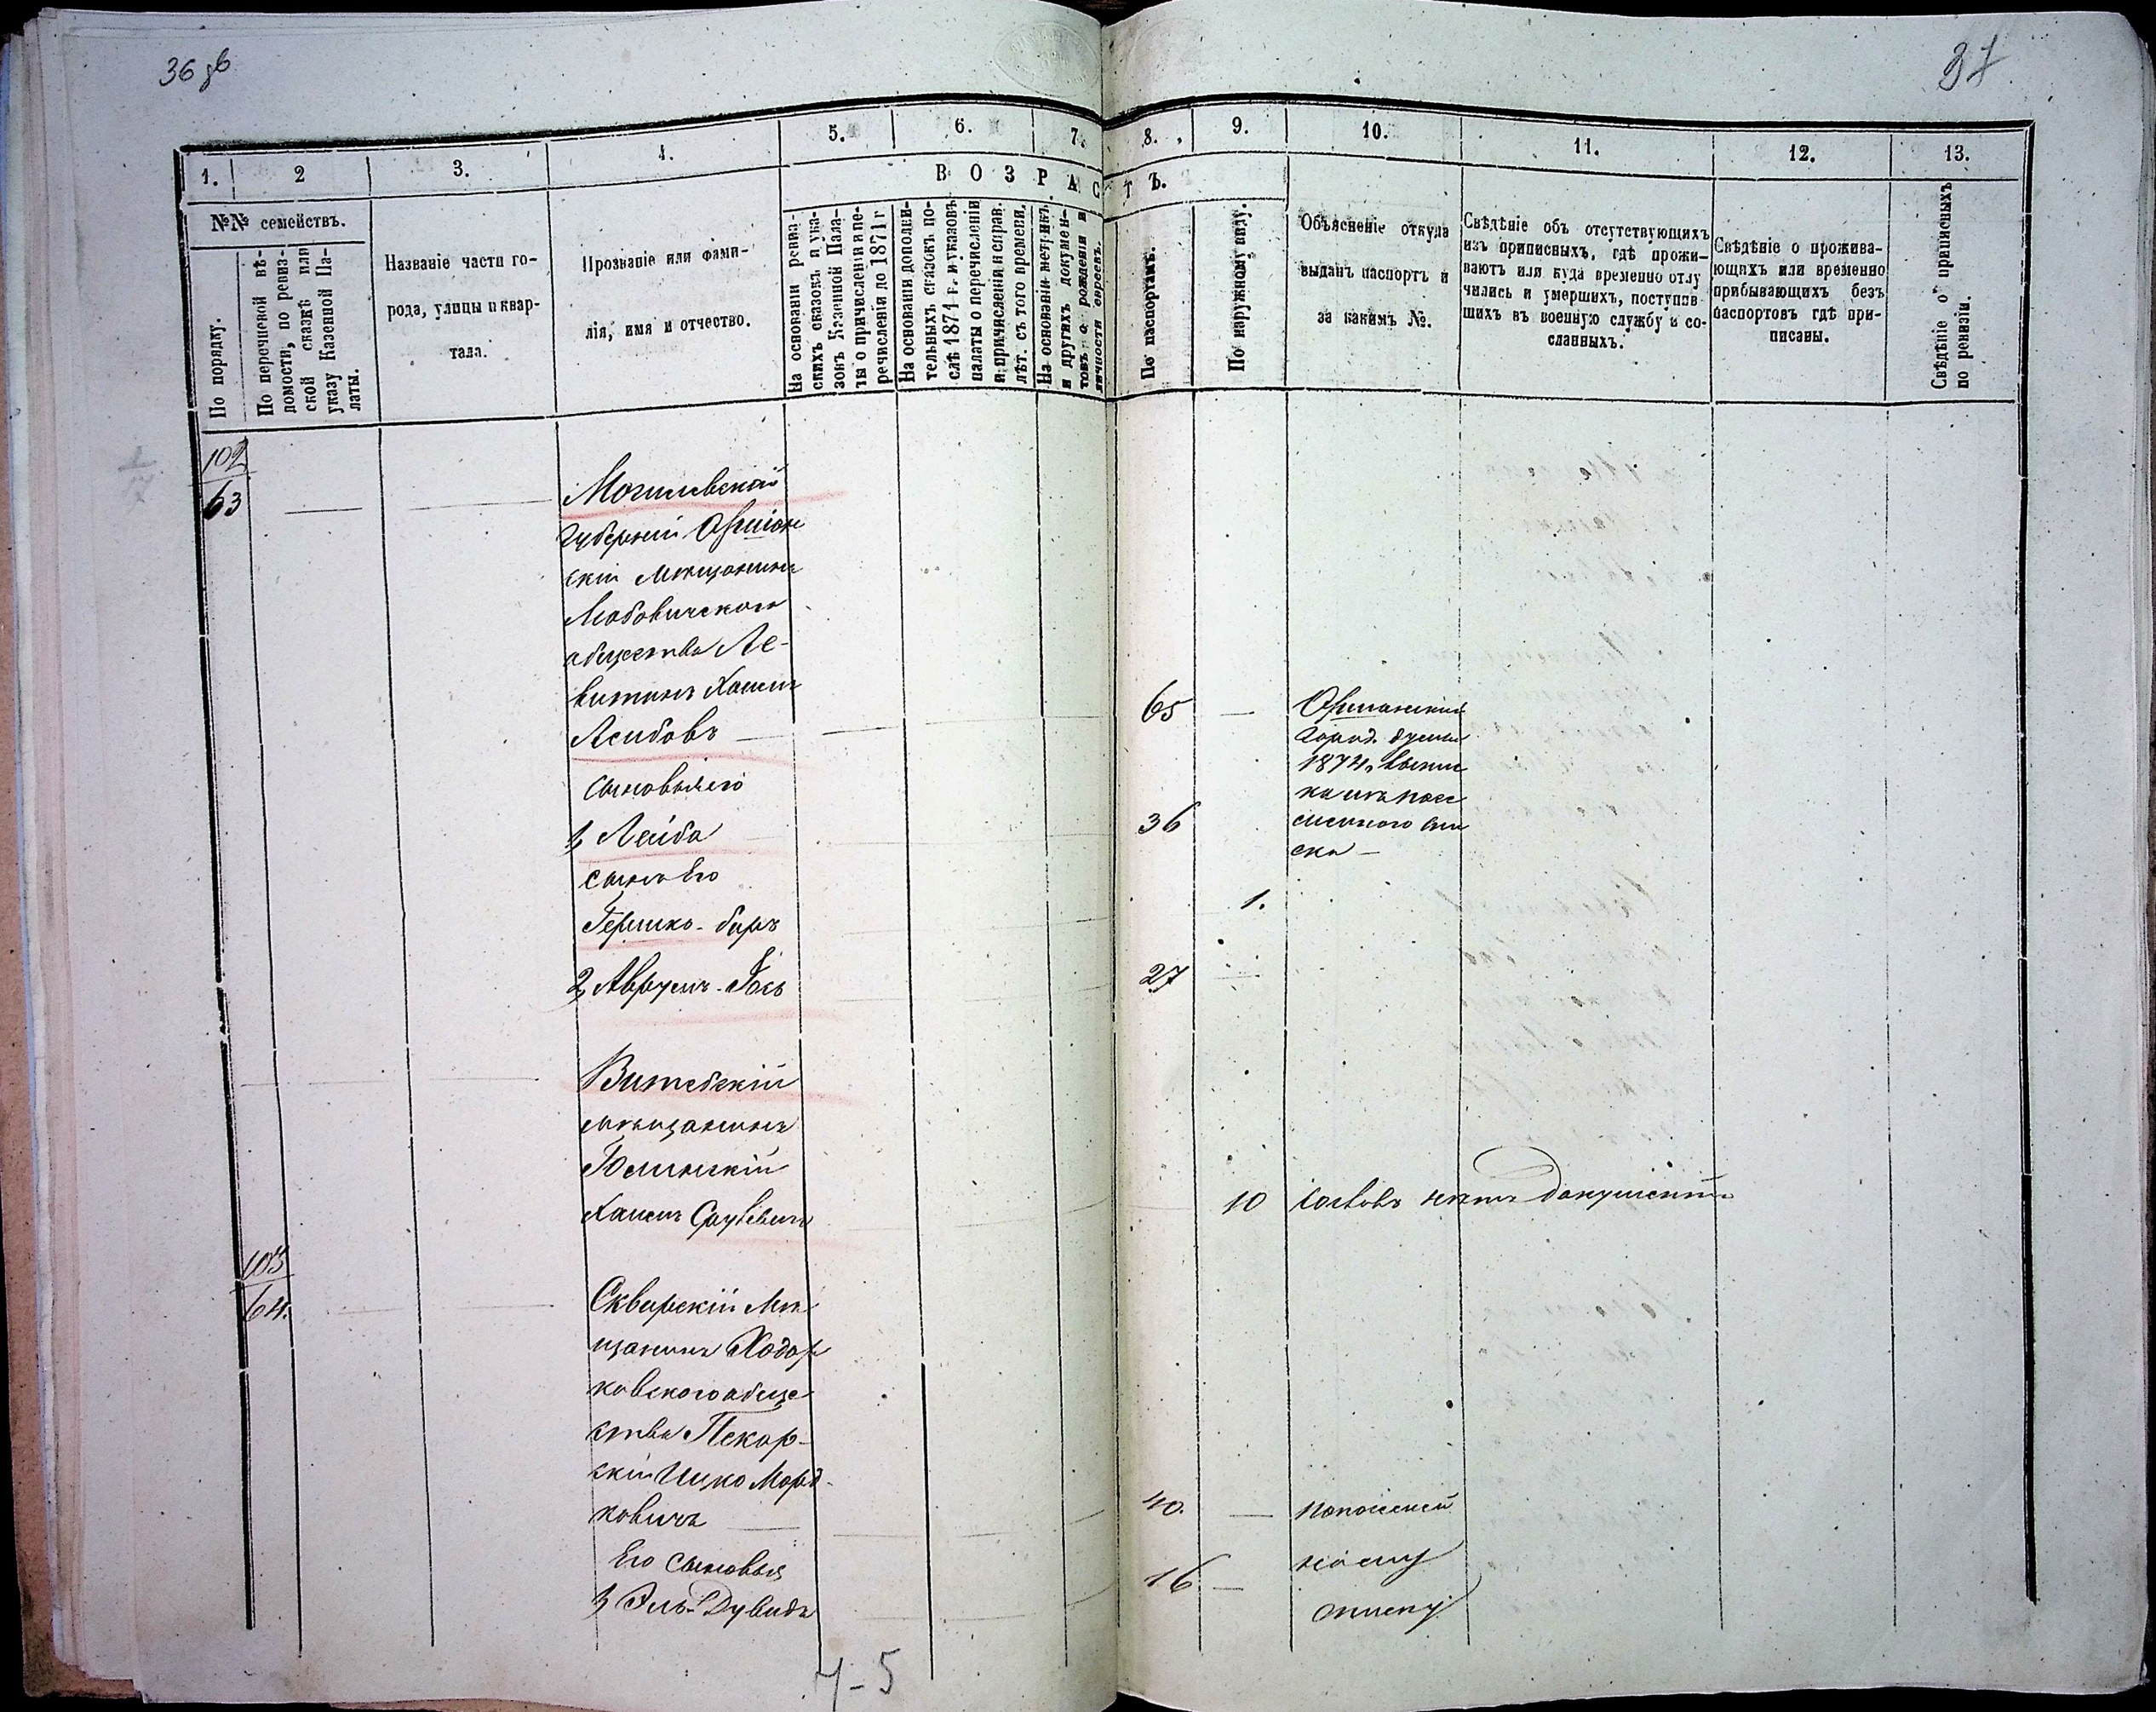 36 об
37
1.
2
3.
4.
5.
6.
7.
8.
9.
10.
11.
12.
13.
№№ семействъ.
По порядку.
По перечневой вѣ-
домости, по ревиз-
ской сказкѣ или
указу Казенной Па-
латы.
Названіе части го-
рода, улицы и квар-
тала.
Прозваніе или фами-
лія, имя и отчество.
ВОЗРАСТЪ.
На основаніи ревиз-
скихъ сказокъ и ука-
зовъ Казенной Пала-
ты о причисленіи и пе-
речисленіи до 1871 г
На основаніи дополни-
тельныхъ сказокъ по-
слѣ 1871 г. и указовъ
палаты о перечисленіи
и причисленіи и справ.
лѣт. съ того времени.
На основаніи метрикъ
и другихъ докумен-
товъ о рожденіи и
личности евреевъ.
По паспортамъ.
По наружному виду.
Объясненіе откуда
выданъ паспортъ и
за какимъ №.
Свѣдѣніе объ отсутствующихъ
изъ приписныхъ, гдѣ прожи-
ваютъ или куда временно отлу
чились и умершихъ, поступив
шихъ въ военную службу и со-
сланныхъ.
Свѣдѣніе о прожива-
ющихъ или временно
прибывающихъ безъ
паспортовъ гдѣ при-
писаны.
Свѣдѣніе о приписныхъ
по ревизіи.
102
63
Могилевской
Губерніи Оршан
скій мѣщанинъ
общества Ле-
витинъ Хаимъ
Лейбовъ
65
Оршанский
Город. думы
1874
сыновья его
1, Лейба
36
сынъ Его
Гершко-беръ
1.
2, Аврумъ-Іось
27
Витебскій
мѣщанинъ
Юлинскій
Хаимъ
10
нѣтъ документ
103
64.
Сквирскій Мѣ
щанинъ Ходор
ковского обще
ства Пекар-
скій Ицко Морд-
ковичъ
40.
Его сыновья
1, Эль-Дувидъ
16
4-5